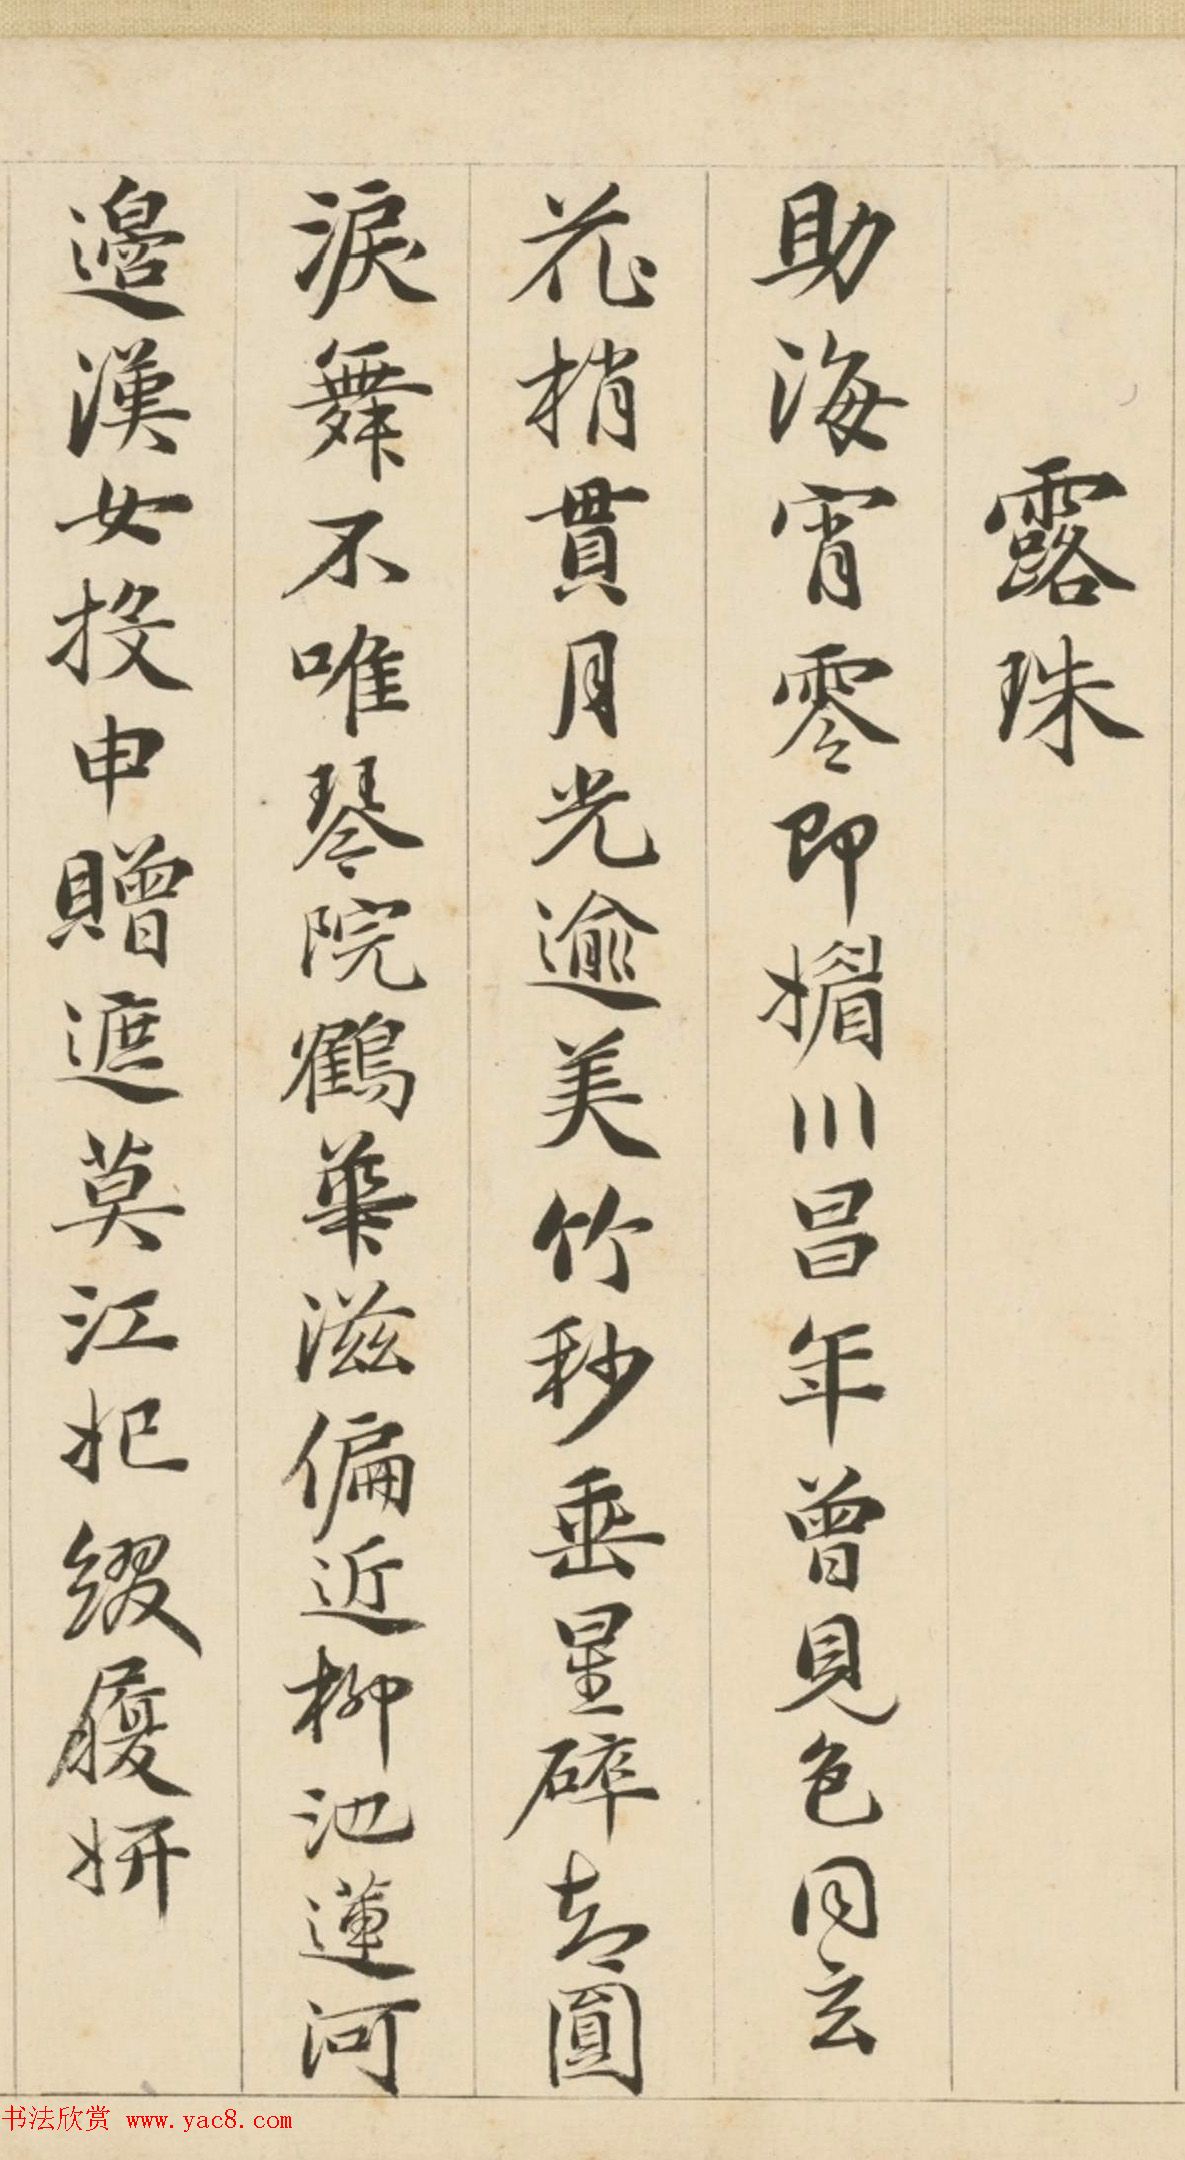 露珠
助海宵零即楣川昌年曾見色同玄
花梢貫月光逾美竹秒垂星碎却圓
淚舞不唯琴院鶴華滋偏近柳池蓮河
邊漢女投申贈遮莫江妃綴履妍
书法欣赏 www.yac8.com